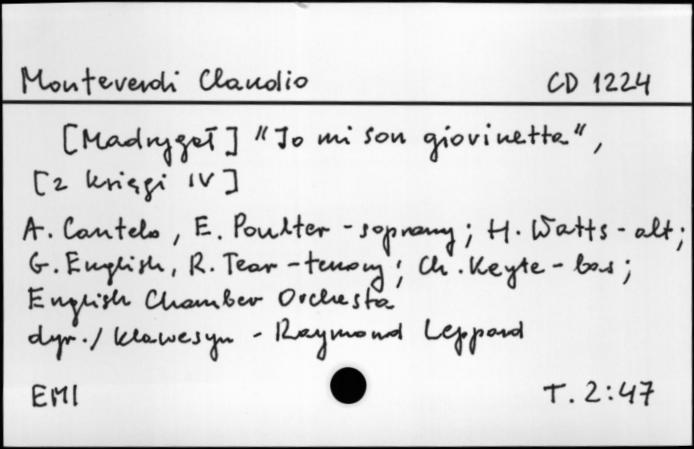 Monteverdi Claudio CD 1224
[Madrygał] "Io mi son giovinetta",
[z księgi IV]
A. Cantelo, E. Poulter - soprany; H. Watts - alt;
G. English, R. Tear - tenory; Ch. Keyte - bas;
English Chamber Orchestra
dyr./ klawesyn - Raymond Leppard
EMI T. 2:47